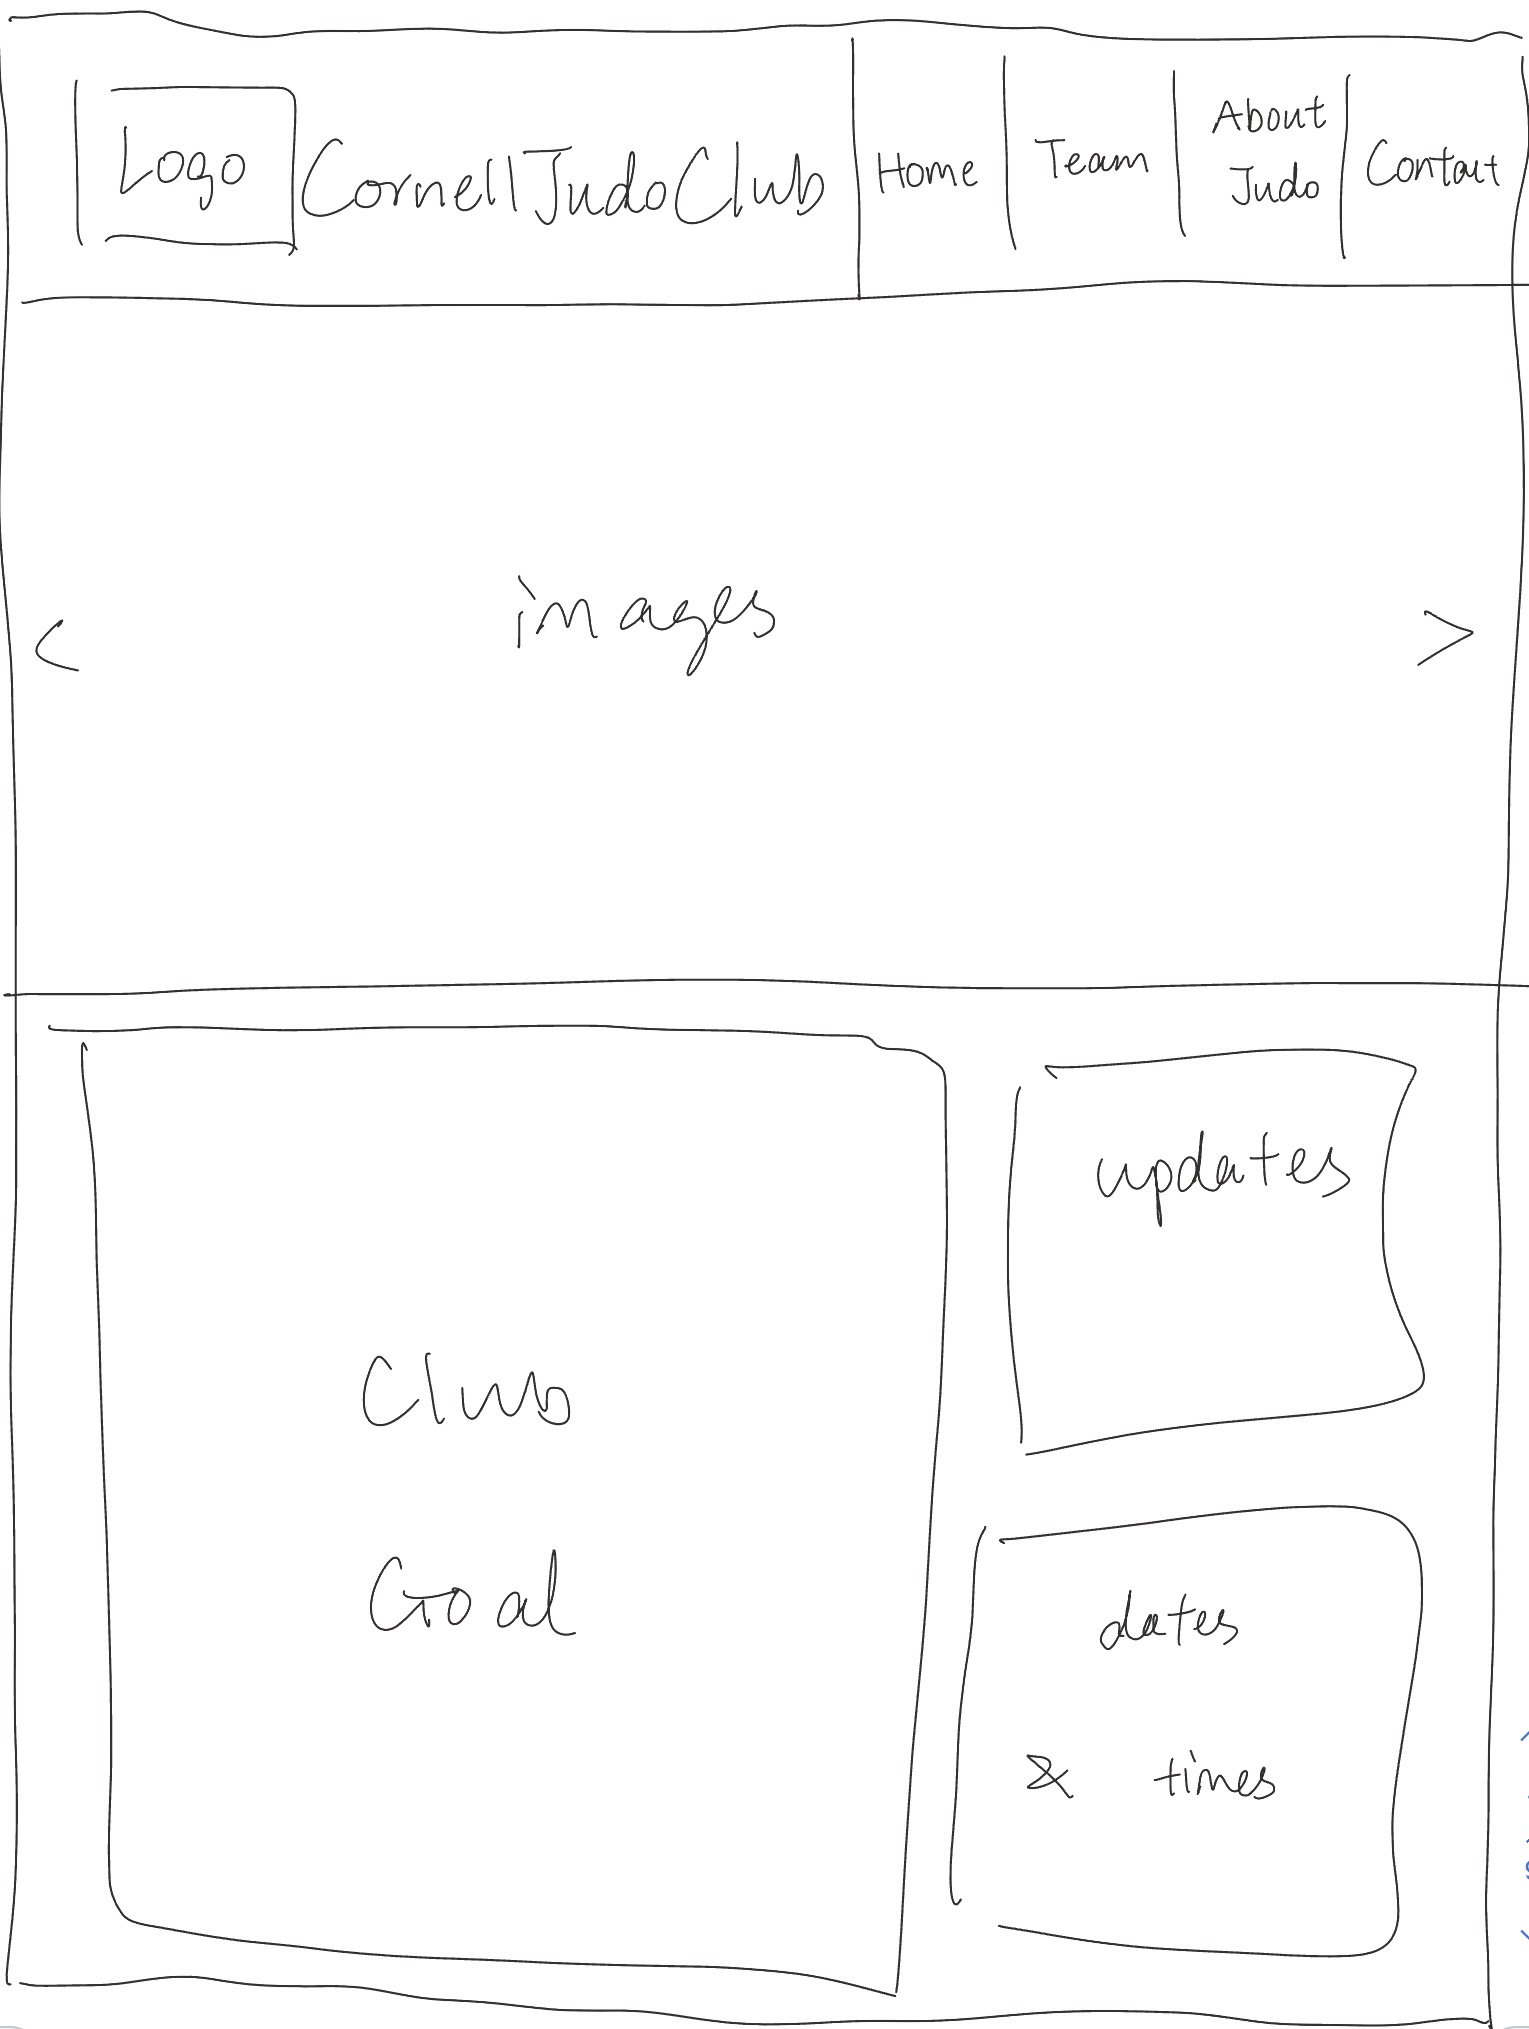 Logo
Cornell Judo Club
Home
Team
About
Judo
Contact
<
images
>
Club
Goal
updates
dates
& times